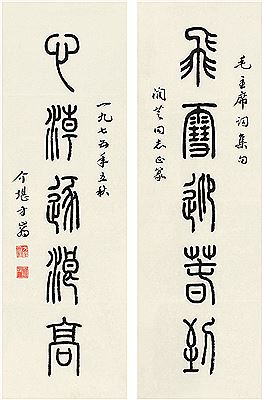 毛主席词集句
飛雪迎春到
同志正篆
心潮逐浪高
一九七 年立秋
介堪方